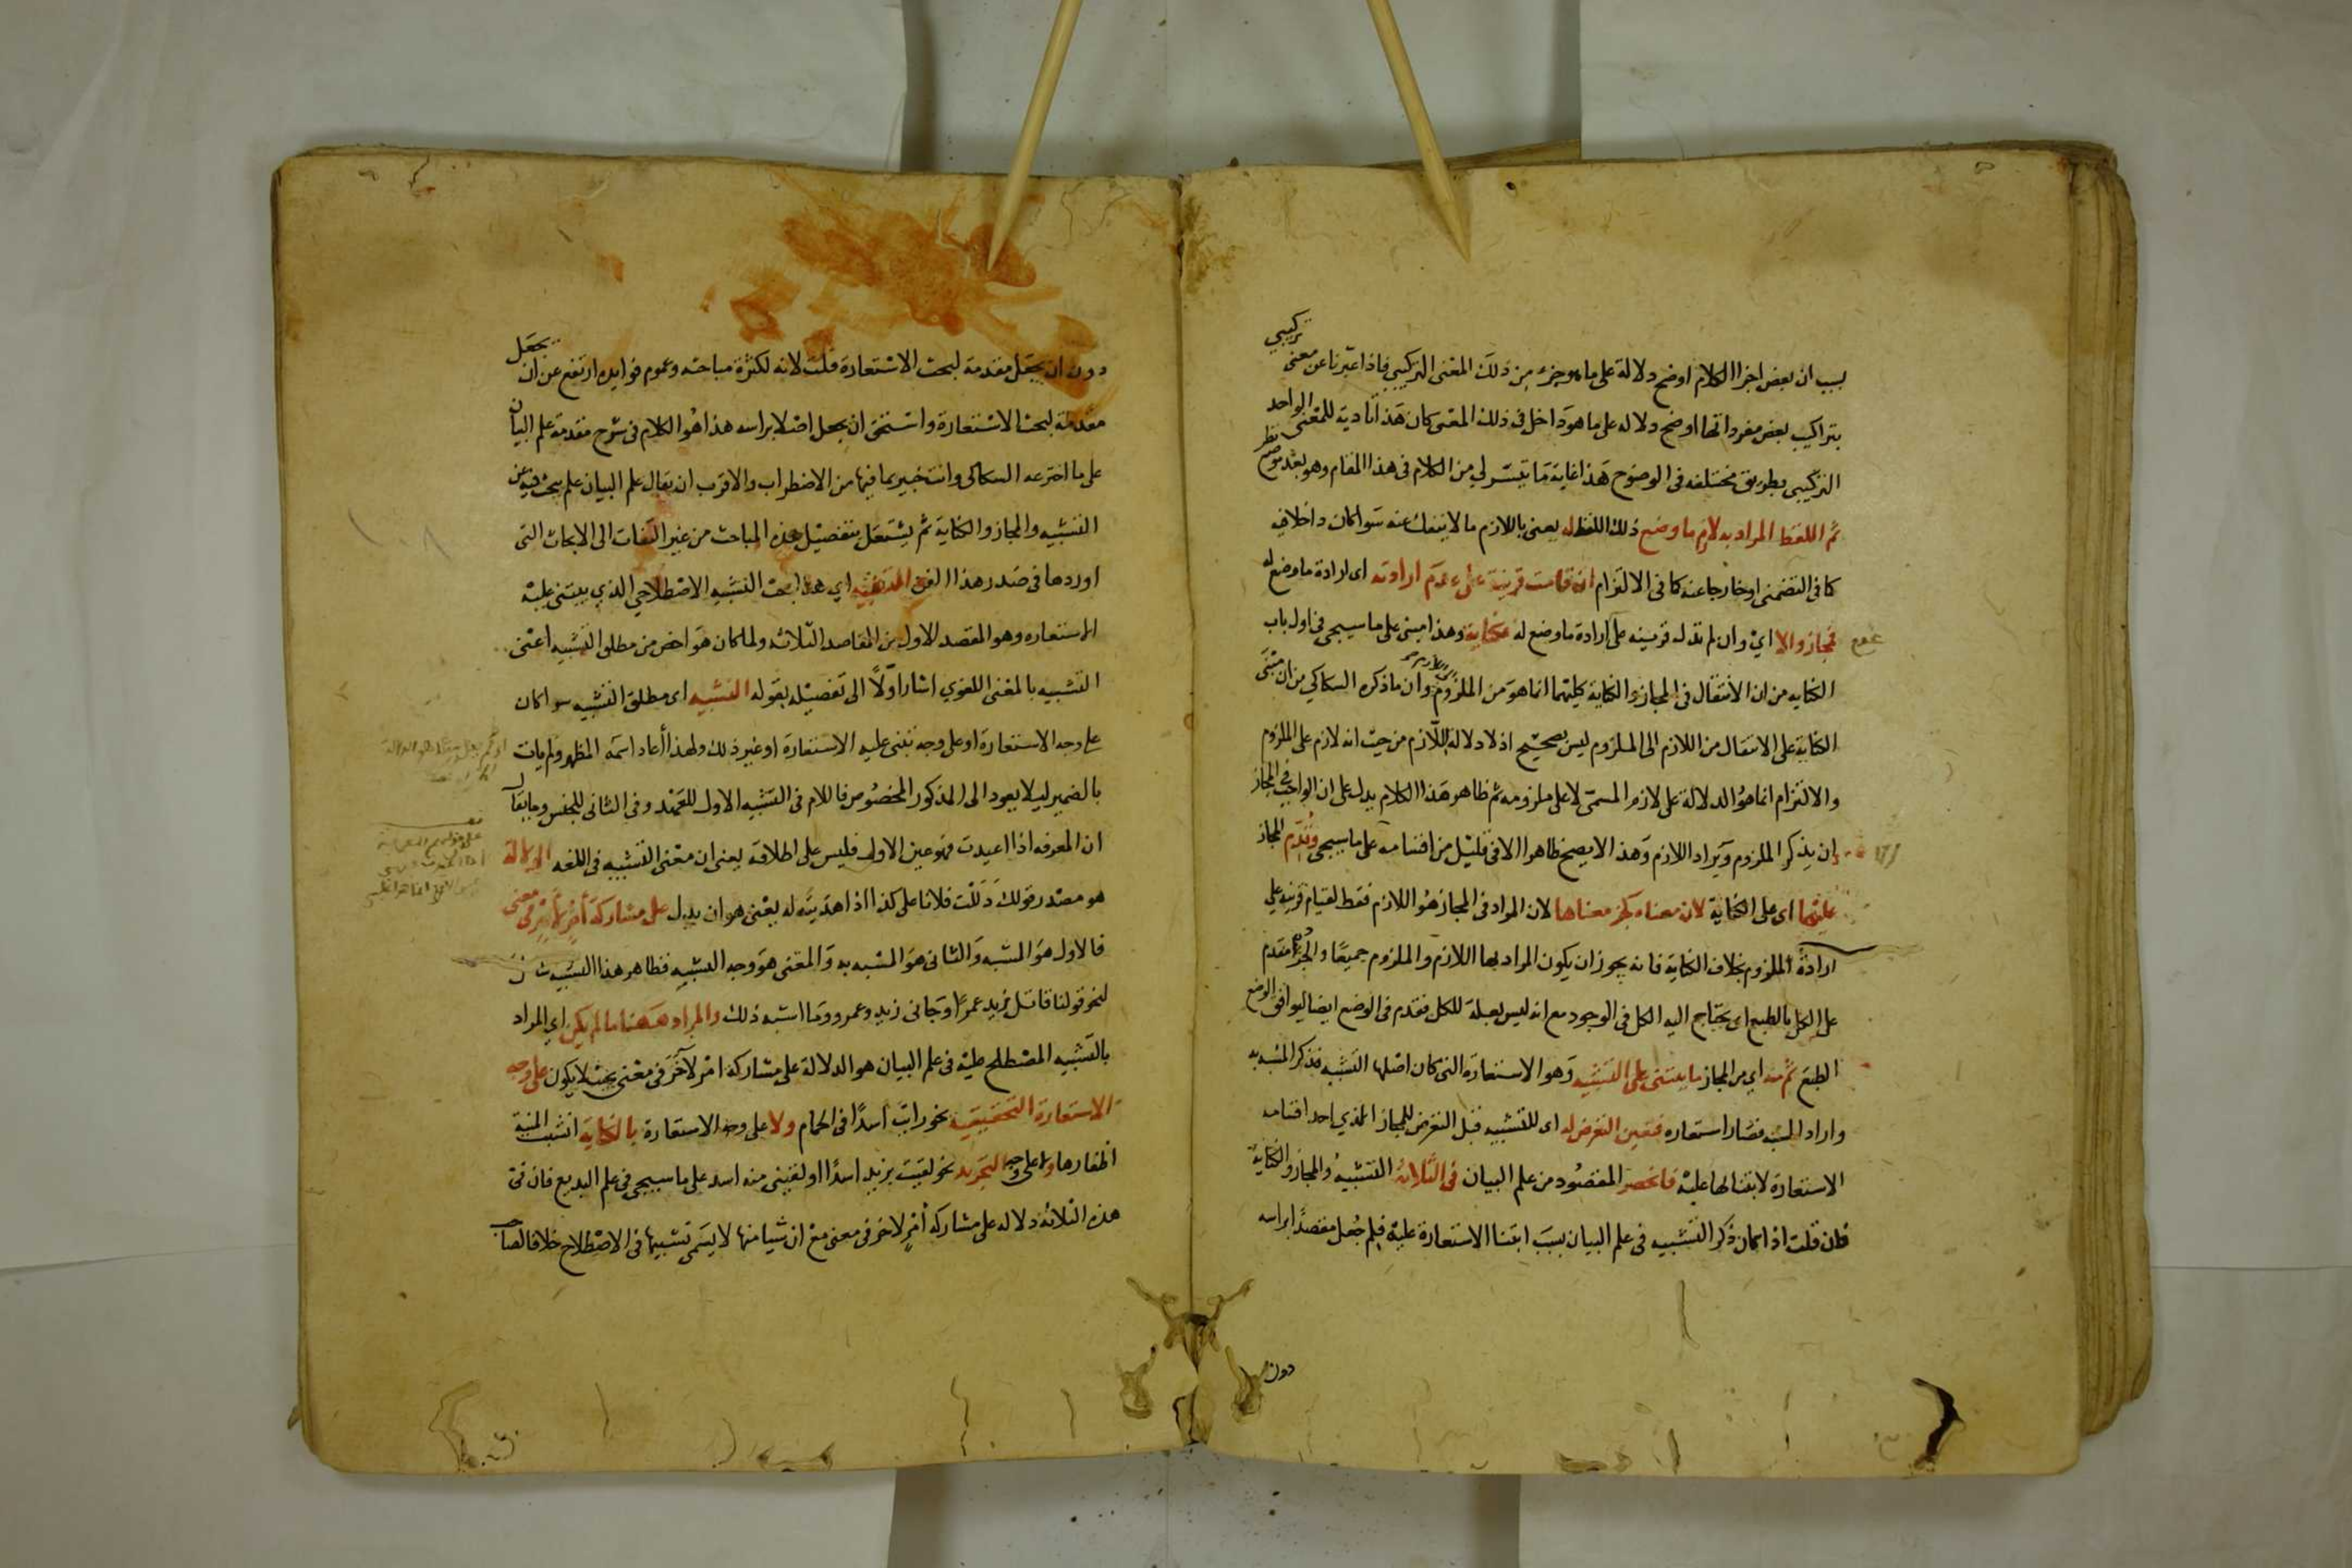 بسبب ان بعض اجزا الكلام اوضح دلالة على ما هو جزء من ذلك المعنى التركيبي فاذا عبرنا عن معنى تركيبي
بتراكيب بعض مفرداتها اوضح دلاله على ما هو داخل فى ذلك المعنى كان هذا تادية للمعنى الواحد
التركيبى بطريق مختلفه فى الوضوح هذا غاية ما تيسر لي من الكلام فى هذا المقام وهو بعد موضع نظر
ثم اللفظ المراد به لازم ما وضع ذلك اللفظ له يعنى باللازم ما لا ينفك عنه سوا كان داخلا فيه
كما فى التضمنى او خارجا عنه كما فى الالتزام ان قامت قرينة على عدم ارادته اى ارادة ما وضع له
فمجاز والا اي وان لم تدل قرينه على ارادة ما وضع له فكناية وهذا مبنى على ما سيجى فى اول باب
الكنايه من ان الانتقال فى المجاز والكناية كليهما انما هو من الملزوم وان ما ذكره السكاكي من ان مبنى
الكناية على الانتقال من اللازم الى الملزوم ليس بصحيح اذ لا دلالة للازم من حيث انه لازم على الملزوم
والالتزام انما هو الدلالة على لازم المسمى لا على ملزومه ثم ظاهر هذا الكلام يدل على ان الواجب فى المجاز
ان يذكر الملزوم ويراد اللازم وهذا لا يصح ظاهرا الا فى قليل من اقسامه على ما سيجى وقدم المجاز
عليها اى على الكناية لان معناه كجزء معناها لان المراد فى المجاز هو اللازم فقط لقيام قرينه على
ارادة الملزوم بخلاف الكناية فانه يجوز ان يكون المراد بها اللازم والملزوم جميعا والجزء مقدم
على الكل بالطبع اى يحتاج اليه الكل فى الوجود مع انه ليس بعلة للكل فقدم فى الوضع ايضا ليوافق الوضع
الطبع ثم منه اي من المجاز ما يبتنى على التشبيه وهو الاستعارة التى كان اصلها التشبيه فذكر المشبه به
واراد المشبه فصار استعاره فتعين التعرض له اى للتشبيه قبل التعرض للمجاز الذي احد اقسامه
الاستعارة لابتنائها عليه فانحصر المقصود من علم البيان فى الثلاثة التشبيه والمجاز والكناية
فان قلت اذا كان ذكر التشبيه فى علم البيان بسبب ابتنا الاستعارة عليه فلم جعل مقصدا براسه
دون
دون ان يجعل مقدمة لبحث الاستعارة قلت لانه لكثرة مباحثه وعموم فوايده ارتفع عن ان يجعل
مقدمة لبحث الاستعارة واستحق ان يجعل اصلا براسه هذا هو الكلام فى شرح مقدمة علم البيان
على ما اخترعه السكاكى وانت خبير بما فيها من الاضطراب والاقرب ان يقال علم البيان علم يبحث فيه عن
التشبيه والمجاز والكناية ثم يشتغل بتفصيل هذه المباحث من غير التفات الى الابحاث التى
اوردها فى صدر هذا الفن التشبيه اي هذا بحث التشبيه الاصطلاحي الذي يبتنى عليه
الاستعاره وهو المقصد الاول من المقاصد الثلاثه ولما كان هو اخص من مطلق التشبيه اعنى
التشبيه بالمعنى اللغوي اشار اولا الى تفصيله بقوله التشبيه اى مطلق التشبيه سوا كان
على وجه الاستعارة او على وجه تبتنى عليه الاستعارة او غير ذلك ولهذا أعاد اسمه المظهر ولم يات
بالضمير ليلا يعود الى المذكور المخصوص فاللام فى التشبيه الاول للعهد وفى الثانى للجنس وما يقال
ان المعرفه اذا اعيدت فهو عين الاول فليس على اطلاقه يعنى ان معنى التشبيه فى اللغه الدلالة
هو مصدر قولك دللت فلانا على كذا اذا هديته له يعنى هو ان يدل على مشاركة أمر لأمر فى معنى
فالاول هو المشبه والثانى هو المشبه به والمعنى هو وجه التشبيه فظاهر هذا التشبيه
لنحو قولنا قاتل زيد عمرا وجانى زيد وعمرو وما اشبه ذلك والمراد ههنا ما لم يكن اي المراد
بالتشبيه المصطلح عليه فى علم البيان هو الدلالة على مشاركة امر لآخر فى معنى بحيث لا يكون على وجه
الاستعارة التحقيقية نحو رايت اسدا فى الحمام ولا على وجه الاستعارة بالكناية انشبت المنية
اظفارها ولا على وجه التجريد نحو لقيت بزيد اسدا او لقينى منه اسد على ما سيجى فى علم البديع فان فى
هذه الثلاثة دلاله على مشاركة أمر لاخر فى معنى مع ان شيا منها لا يسمى تشبيها فى الاصطلاح خلافا لصاحب